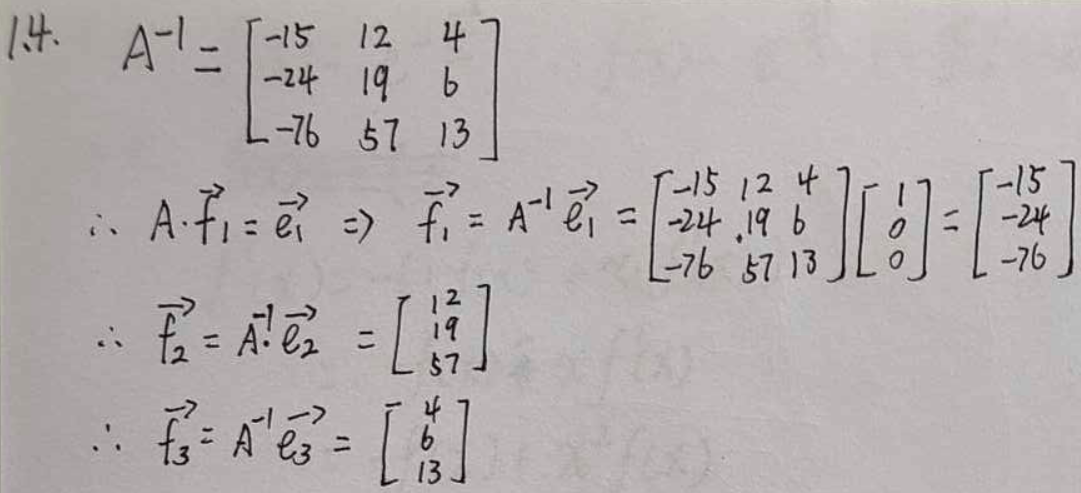 1.4. A⁻¹ = [-15 12 4; -24 19 6; -76 57 13]
∴ A·f⃗₁ = e⃗₁ ⇒ f⃗₁ = A⁻¹ e⃗₁ = [-15 12 4; -24 19 6; -76 57 13] [1; 0; 0] = [-15; -24; -76]
∴ f⃗₂ = A⁻¹·e⃗₂ = [12; 19; 57]
∴ f⃗₃ = A⁻¹ e⃗₃ = [4; 6; 13]